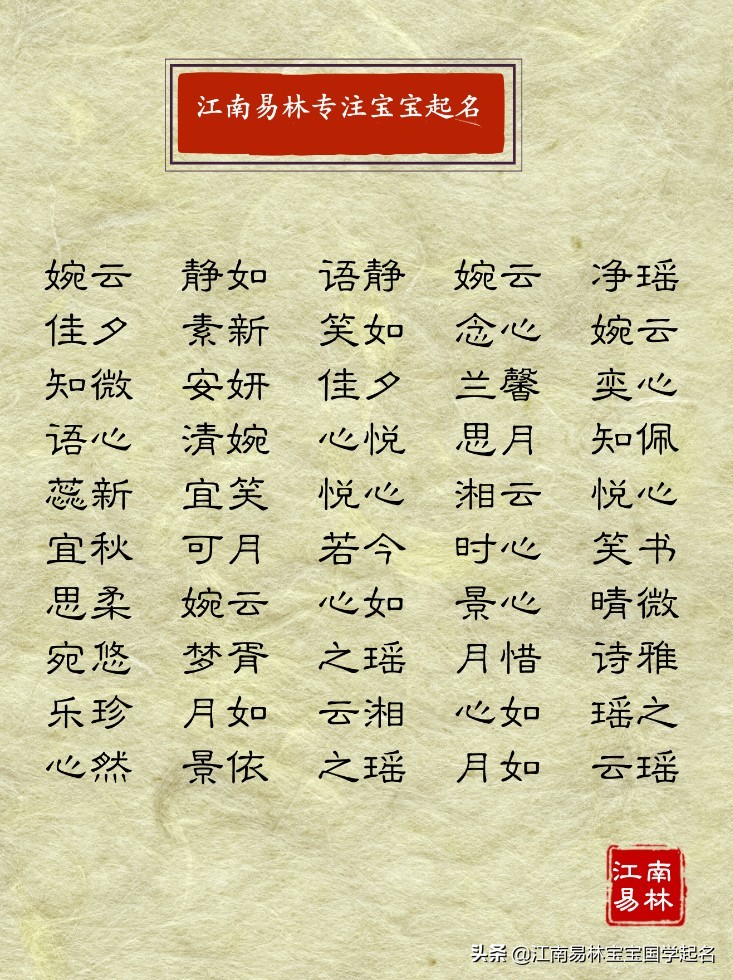 江南易林专注宝宝起名
婉云 静如 语静 婉云 净瑶
佳夕 素新 笑如 念心 婉云
知微 安妍 佳夕 兰馨 奕心
语心 清婉 心悦 思月 知佩
蕊新 宜笑 悦心 湘云 悦心
宜秋 可月 若今 时心 笑书
思柔 婉云 心如 景心 晴微
宛悠 梦胥 之瑶 月惜 诗雅
乐珍 月如 云湘 心如 瑶之
心然 景依 之瑶 月如 云瑶
江南
易林
头条 @江南易林宝宝国学起名